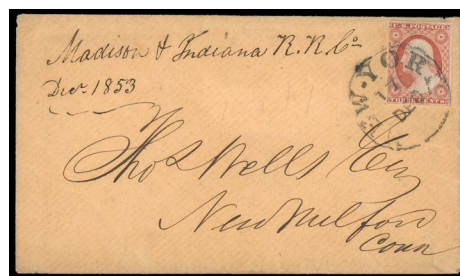 Madison & Indiana R.R. Co
Dec. 1853
U.S. POSTAGE
THREE CENTS
NEW-YORK
17
DEC
Thos Wells Esq
New Milford
Conn